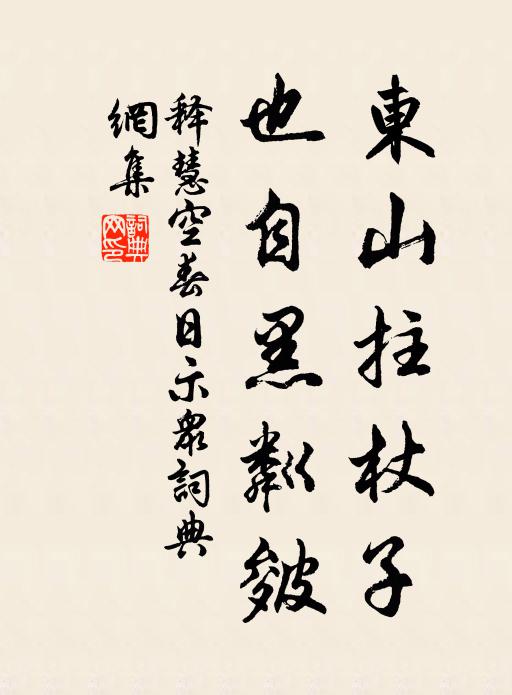 東山拄杖子
也自黑粼皴
释慧空春日示衆詞典
網集
詞典網印